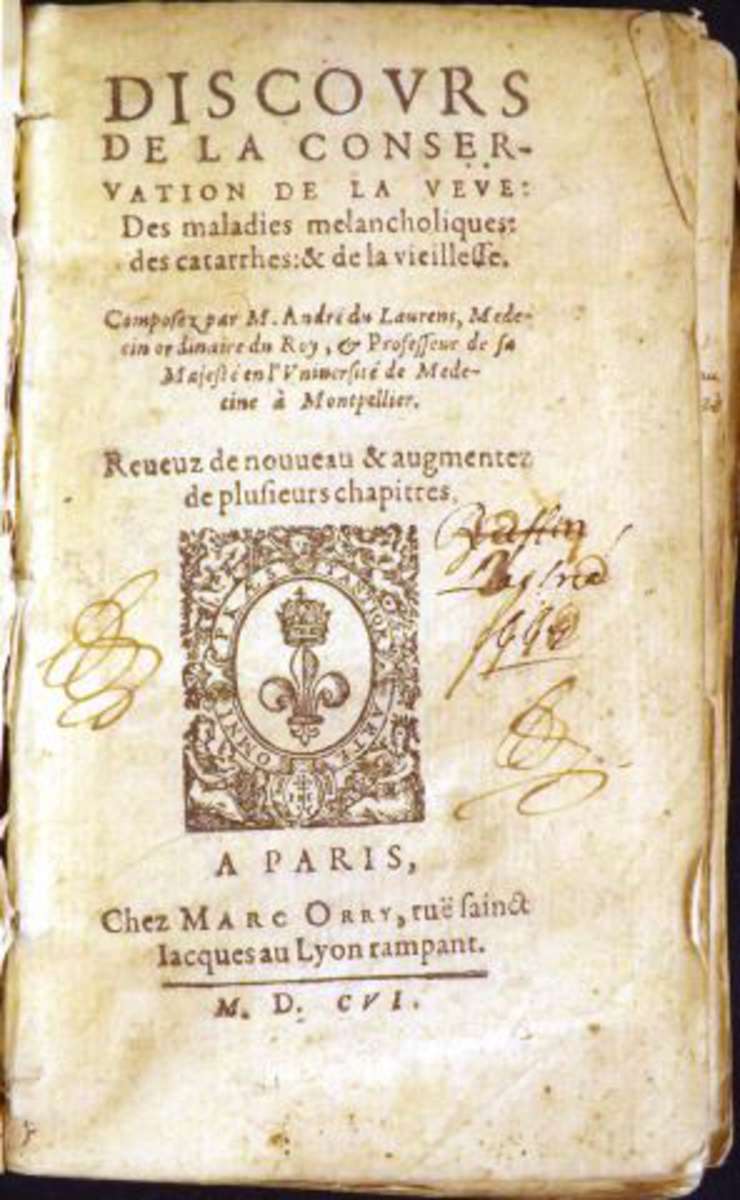 DISCOVRS
DE LA CONSER-
VATION DE LA VEVE:
Des maladies melancholiques:
des catarrhes: & de la vieillesse.
Composez par M. André du Laurens, Mede-
cin ordinaire du Roy, & Professeur de sa
Majesté en l'Vniuersité de Mede-
cine à Montpellier.
Reueuz de nouueau & augmentez
de plusieurs chapitres.
PLAS TANTOR
OMNI ARTE
A PARIS,
Chez MARC ORRY, ruë sainct
Iacques au Lyon rampant.
M. D. CVI.